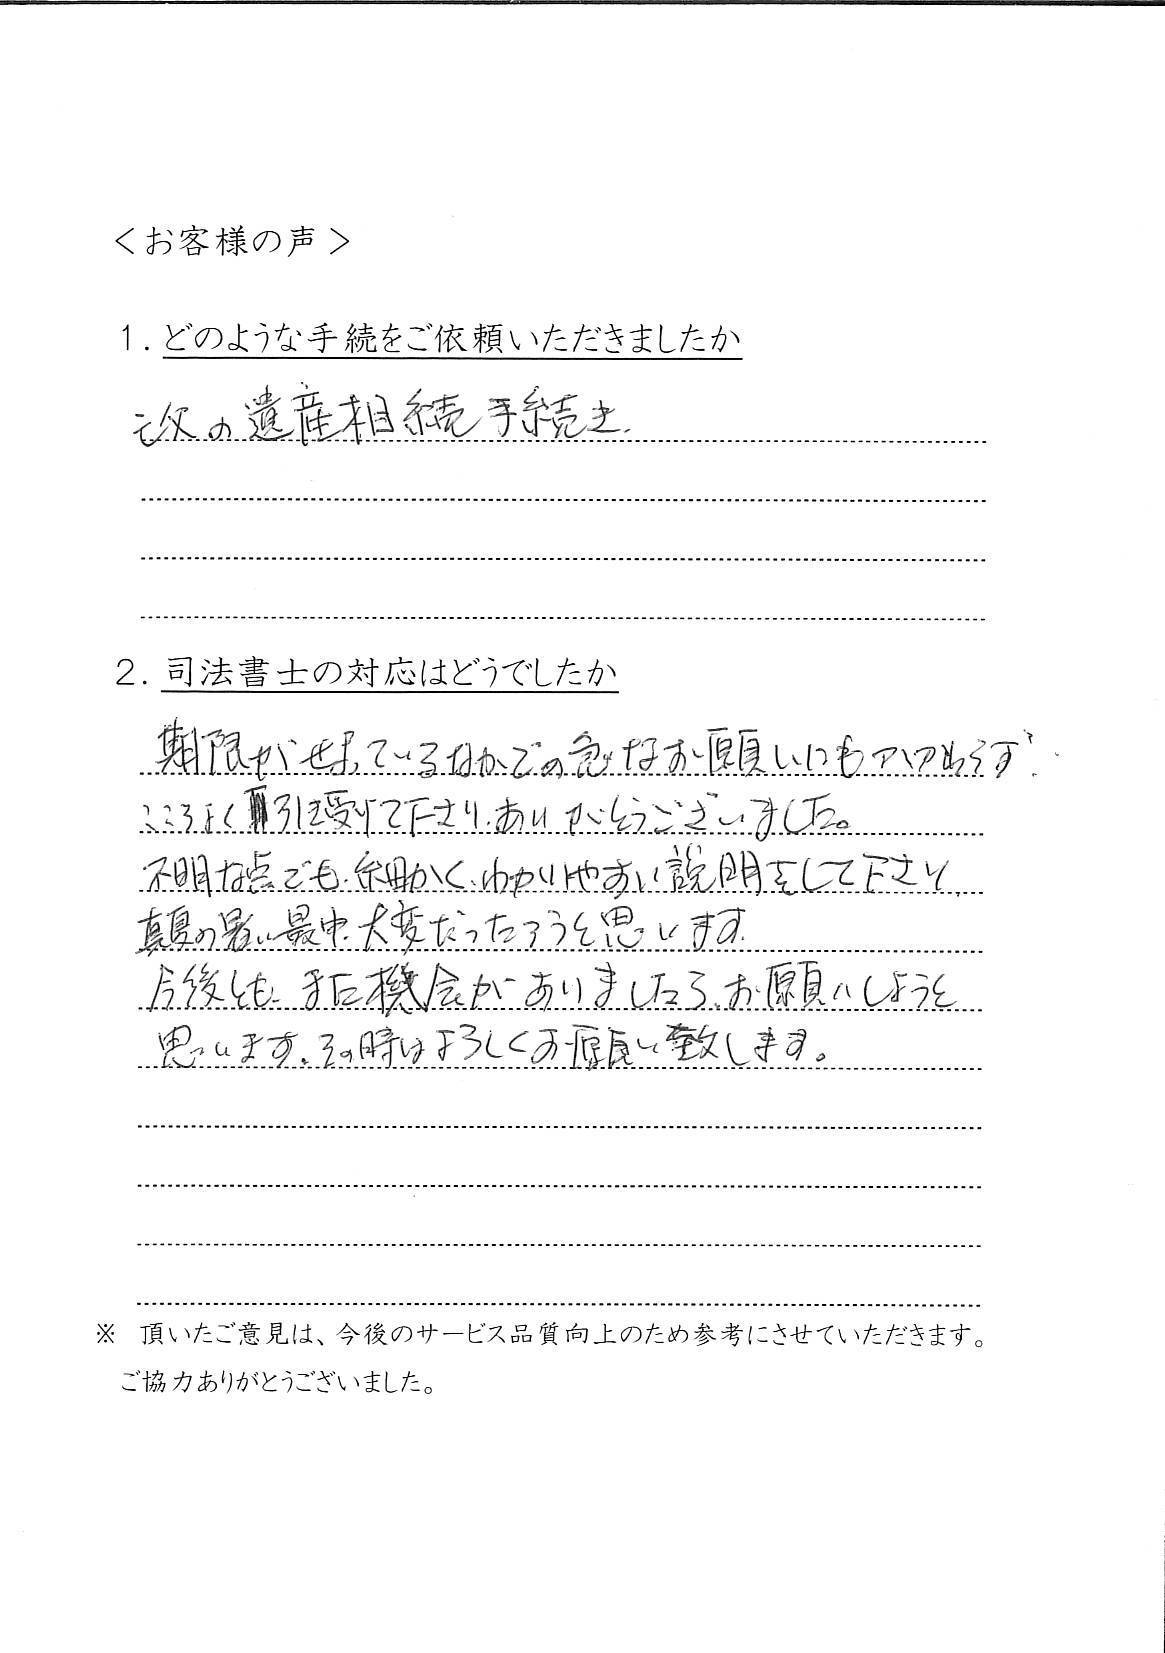 ＜お客様の声＞
１．どのような手続をご依頼いただきましたか
の遺産相続手続き.
２．司法書士の対応はどうでしたか
期限がせまっているなかでの急なお願いにもかかわらず、
こころよく引き受けて下さり、ありがとうございました。
不明な点でも、細かく、わかりやすい説明をして下さり、
真夏の暑い最中、大変だったろうと思います。
今後とも、また機会がありましたら、お願いしようと
思います。その時はよろしくお願い致します。
※　頂いたご意見は、今後のサービス品質向上のため参考にさせていただきます。
ご協力ありがとうございました。